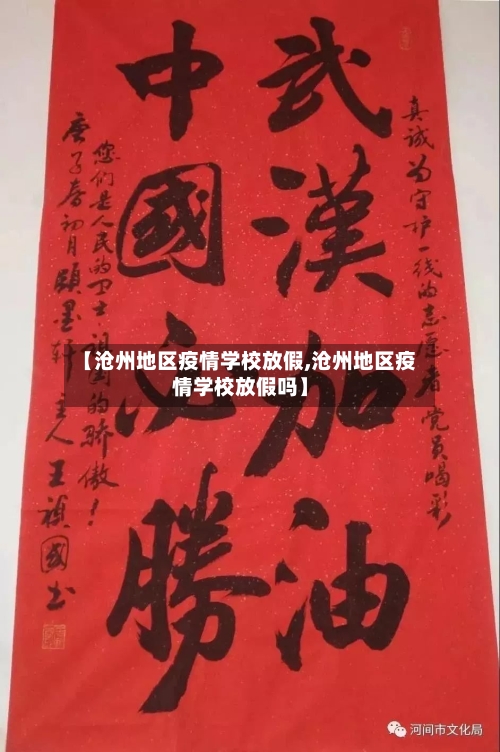 真诚为守护一线的志愿者党员喝彩
武漢加油
中國必勝
您们是人民的卫士祖国的骄傲！
庚子春初月頤墨轩主人王禎國书
【沧州地区疫情学校放假,沧州地区疫
情学校放假吗】
河间市文化局